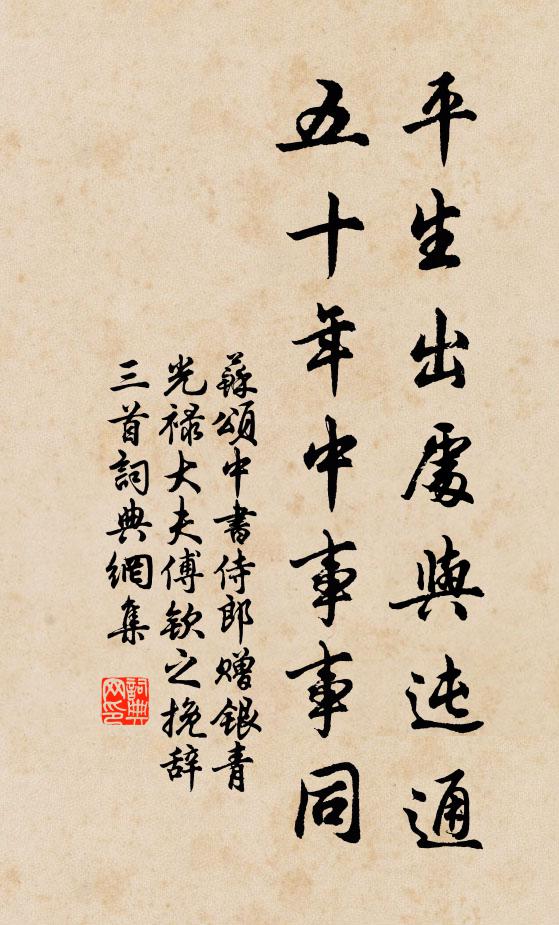 平生出處與迍通
五十年中事事同
蘇頌中書侍郎贈銀青
光祿大夫傅欽之挽辞
三首詞典網集
詞典網印